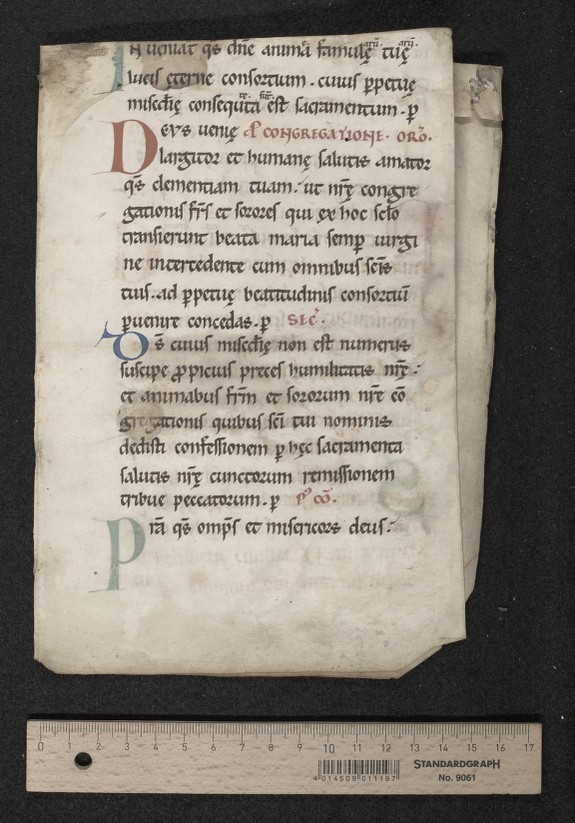 Inueniat qs dñe anima famulę tuę
lucis ęterne consortium. cuius ꝑpetuę
misc̄dię consequuta est sacramentum. ꝑ
DEVS uenię ꝓ CONGREGATIONE. ORO.
largitor et humanę salutis amator
qs clementiam tuam. ut nr̄ę congre
gationis fr̄s et sorores qui ex hoc sclo
transierunt beata maria semꝑ uirgi
ne intercedente cum omnibus sc̄is
tuis. ad ꝑpetuę beatitudinis consortiū
ꝑuenire concedas. ꝑ SEC̄.
Ds̄ cuius misc̄dię non est numerus
suscipe ꝓpicius preces humilitatis nr̄ę.
et animabus fr̄m et sororum nr̄ę cō
gregationis quibus sc̄i tui nominis
dedisti confessionem ꝑ hęc sacramenta
salutis nr̄ę cunctorum remissionem
tribue peccatorum. ꝑ P̕ CŌ.
Pr̄a qs omp̄s et misericors deus.
0 1 2 3 4 5 6 7 8 9 10 11 12 13 14 15 16 17
4 014509 011197
STANDARDGRAPH
No. 9061